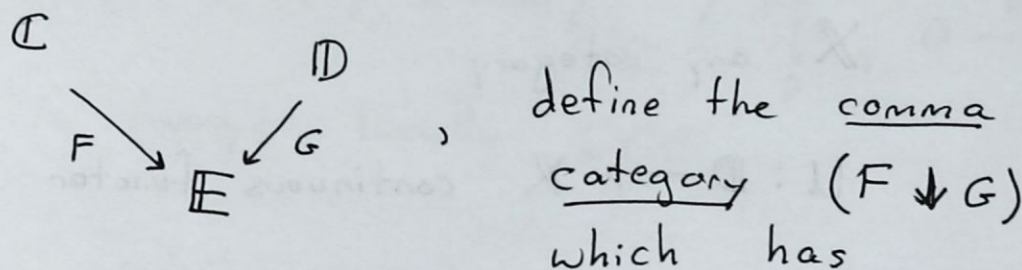 ℂ
𝔻
F
G
𝔼
, define the comma
category (F ↓ G)
which has